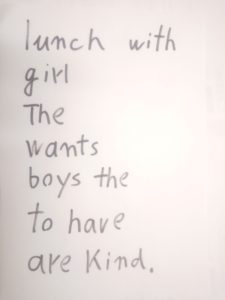 lunch with
girl
The
wants
boys the
to have
are Kind.